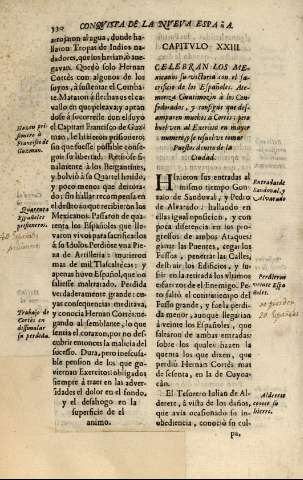 330 CONQVISTA DE LA NVEVA ESPAÑA.
arrojaron al agua, donde hallaron
Tropas de Indios nadadores,
que los herian, ò anegavan.
Quedò solo Hernan
Cortès con algunos de los
suyos, à sustentar el Combate.
Mataron à flechazos el cavallo
en que peleava; y apeandose
à socorrerle con el suyo
el Capitan Francisco de Guzman,
le hizieron prisionero,
sin que fuesse possible conseguir
su libertad. Retiròse finalmente
à los Bergantines,
y bolviò à su Quartel herido,
y poco menos que derrotado;
sin hallar recompensa en
el destrozo que recibieron los
Mexicanos. Passaron de quarenta
los Españoles que llevaron
vivos para sacrificarlos
à sus Idolos: Perdiòse vna Pieza
de Artilleria: murieron
mas de mil Tlascaltècas: y
apenas huvo Español, que no
saliesse maltratado. Perdida
verdaderamente grande: cuyas
consequencias meditava,
y conocia Hernan Cortès: negando
al semblante, lo que
sentia el corazon, por no descubrir
entonces la malicia del
sucesso. Dura, pero inescusable
pension de los que goviernan
Exercitos: obligados
siempre à traer en las adversidades
el dolor en el fondo,
y el desahogo en la
superficie de el
animo.
Hazen prisionero
à Francisco de
Guzman.
Quarenta
Españoles
prisioneros.
Trabajo de
Cortès en
dissimular
su perdida.
CAPITVLO XXIII.
CELEBRAN LOS MEXICANOS
su victoria con el sacrificio
de los Españoles. Atemoriza
Guatimozin à los Confederados,
y consigue que desamparen
muchos à Cortès; pero
buelven al Exercito en mayor
numero, y se resuelve tomar
Puestos dentro de la
Ciudad.
HIzieron sus entradas al
mismo tiempo Gonzalo
de Sandoval, y Pedro
de Alvarado: hallando en
ellas igual oposicion, y con
poca diferencia en los progressos
de ambos Ataques:
ganar las Puentes, cegar los
Fossos, penetrar las Calles,
destruir los Edificios, y sufrir
en la retirada los vltimos
esfuerzos de el Enemigo. Pero
faltò el contratiempo del
Fosso grande, y fue la perdida
menor, aunque llegarian
à veinte los Españoles, que
faltaron de ambas entradas:
sobre los quales hazen la
quenta los que dizen, que
perdiò Hernan Cortès mas
de sesenta, en la de Cuyoacàn.
El Tesorero Iulian de Alderete,
à vista de los daños,
que avia ocasionado su inobediencia,
conociò su culpa,
Entrada de
Sandoval, y
Alvarado
Perdieron
veinte Españoles.
20 Españoles
Alderete
conoce su
hierro.